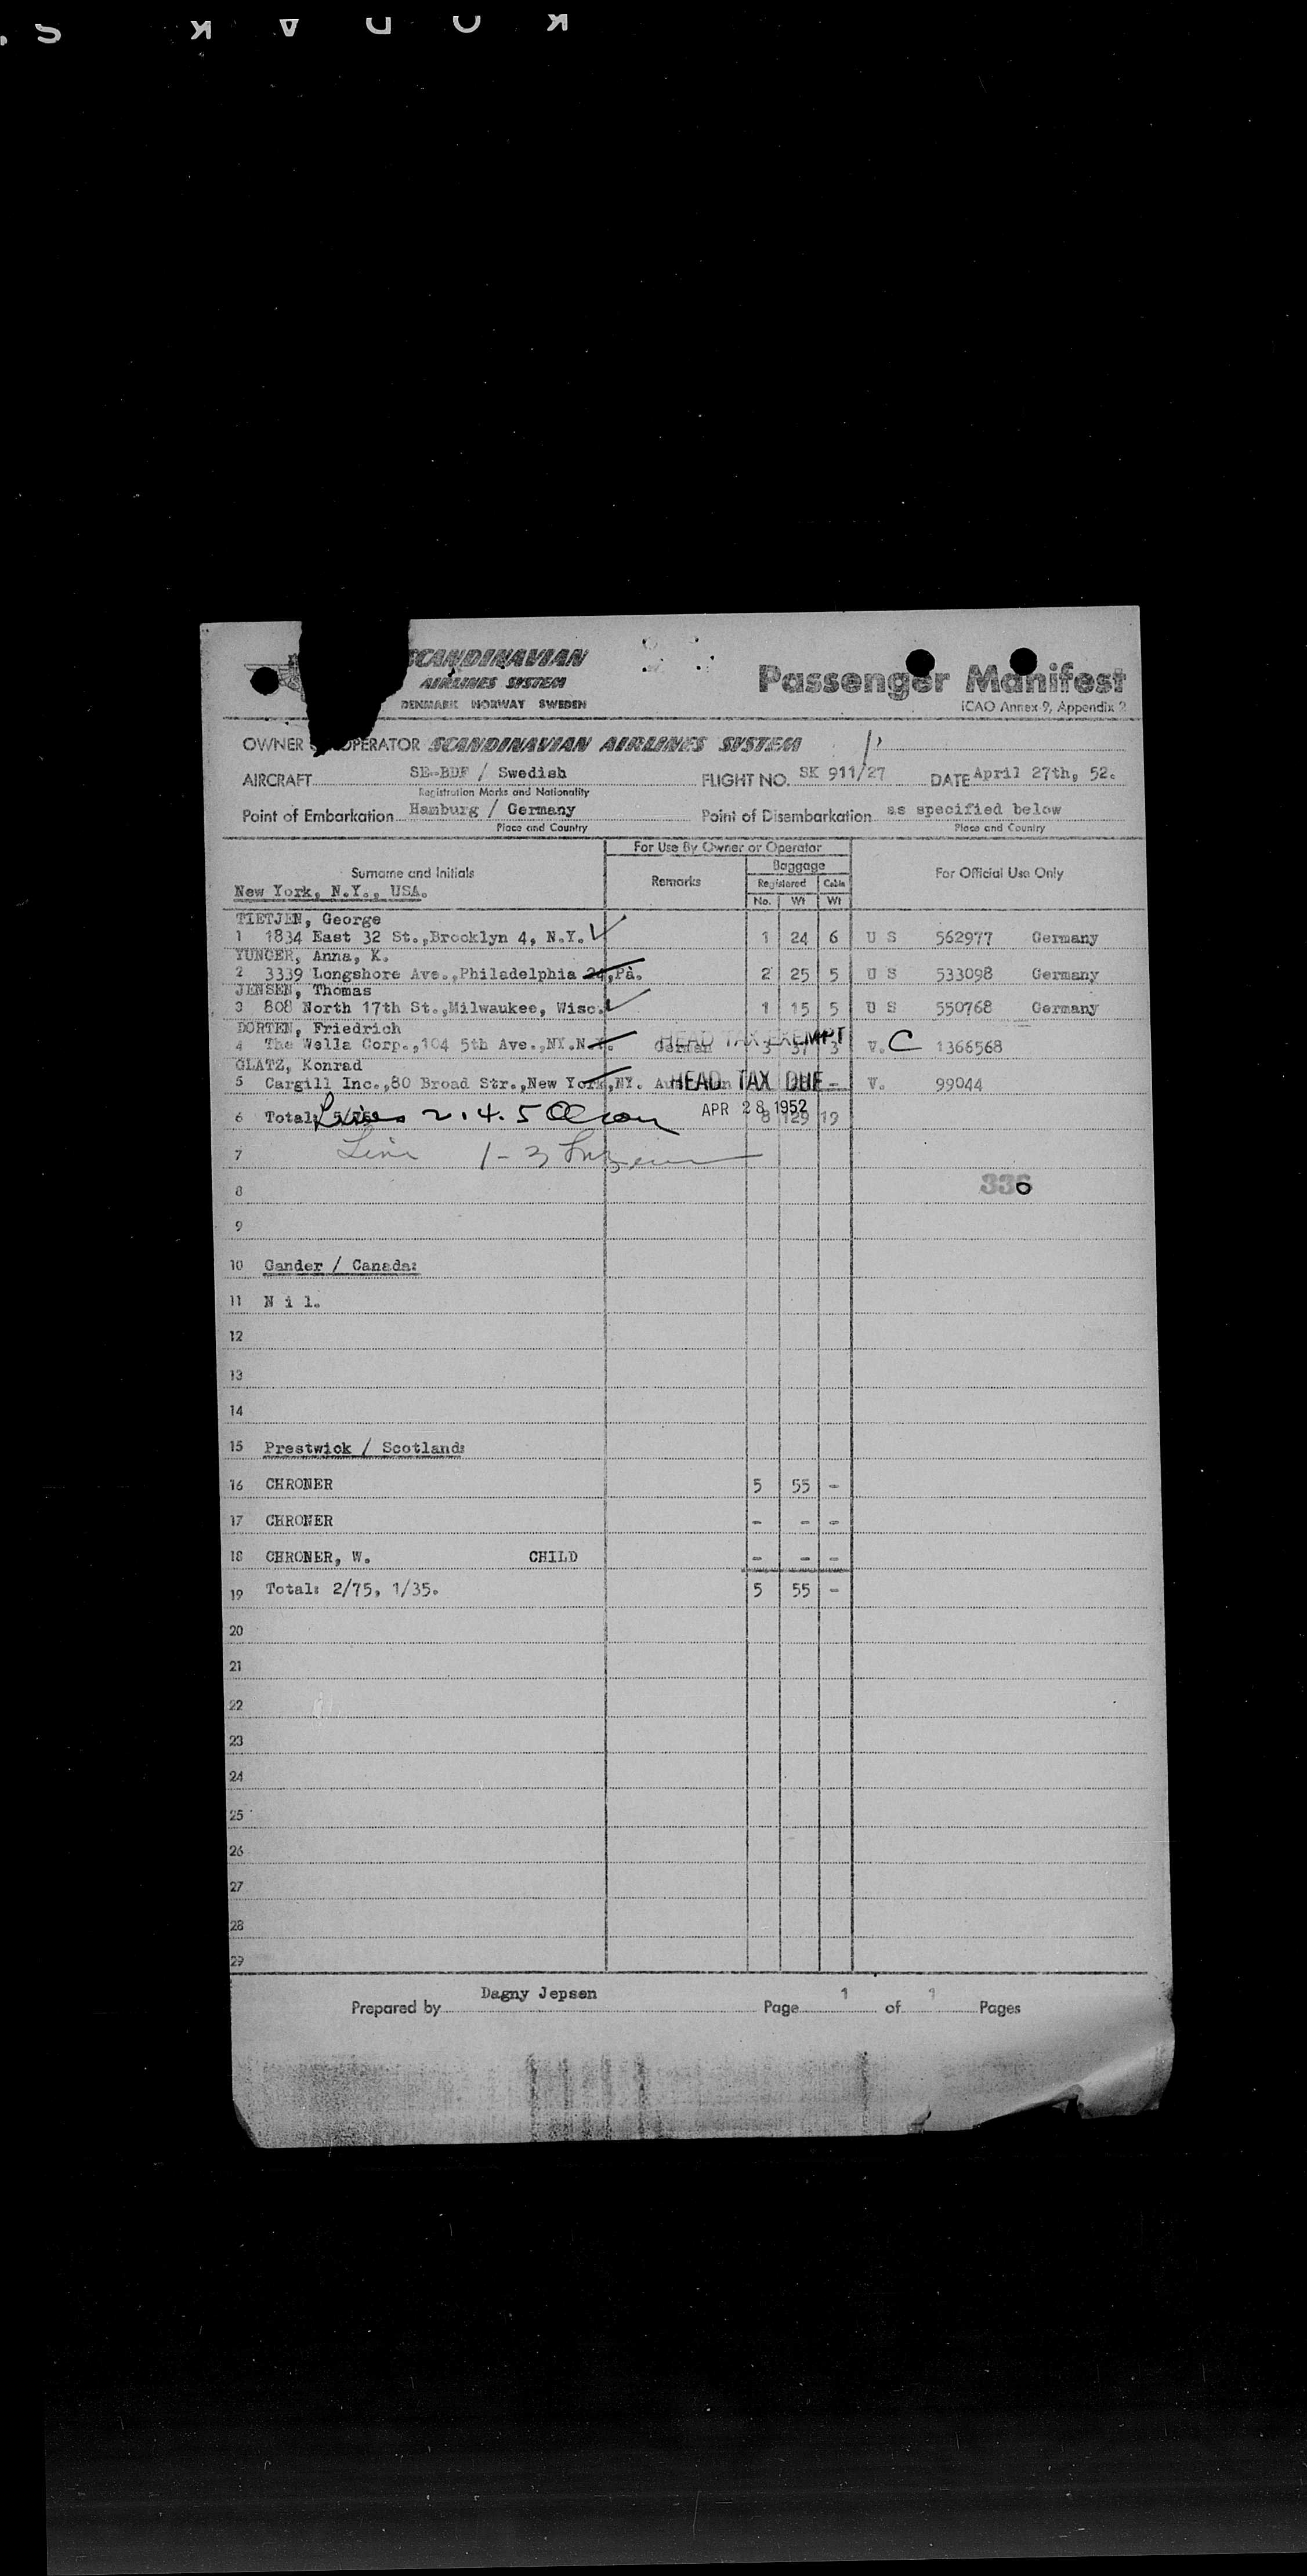 SCANDINAVIAN
AIRLINES SYSTEM
DENMARK NORWAY SWEDEN
Passenger Manifest
ICAO Annex 9, Appendix 2
OWNER OPERATOR SCANDINAVIAN AIRLINES SYSTEM
AIRCRAFT SE-BDF / Swedish FLIGHT NO. SK 911/27 DATE April 27th, 52.
Registration Marks and Nationality
Point of Embarkation Hamburg / Germany Point of Disembarkation as specified below
Place and Country Place and Country
For Use By Owner or Operator
Surname and Initials Remarks Baggage For Official Use Only
Registered Cabin
No. Wt Wt
New York, N.Y., USA.
TIETJEN, George
1 1834 East 32 St.,Brooklyn 4, N.Y. 1 24 6 U S 562977 Germany
YUNGER, Anna, K.
2 3339 Longshore Ave.,Philadelphia ,Pa. 2 25 5 U S 533098 Germany
JENSEN, Thomas
3 808 North 17th St.,Milwaukee, Wisc. 1 15 5 U S 550768 Germany
DORTEN, Friedrich
HEAD TAX EXEMPT
4 The Wella Corp.,104 5th Ave.,NY.N.Y. German 3 37 3 V. C 1366568
GLATZ, Konrad
5 Cargill Inc.,80 Broad Str.,New York,NY. - V. 99044
HEAD TAX DUE
APR 28 1952
6 Total: 8 129 19
Lines 2.4.5
7 Line 1-3
8 336
9
10 Gander / Canada:
11 N i l.
12
13
14
15 Prestwick / Scotland:
16 CHRONER 5 55 -
17 CHRONER - - -
18 CHRONER, W. CHILD - - -
19 Total: 2/75, 1/35. 5 55 -
20
21
22
23
24
25
26
27
28
29
Prepared by Dagny Jepsen Page 1 of 1 Pages